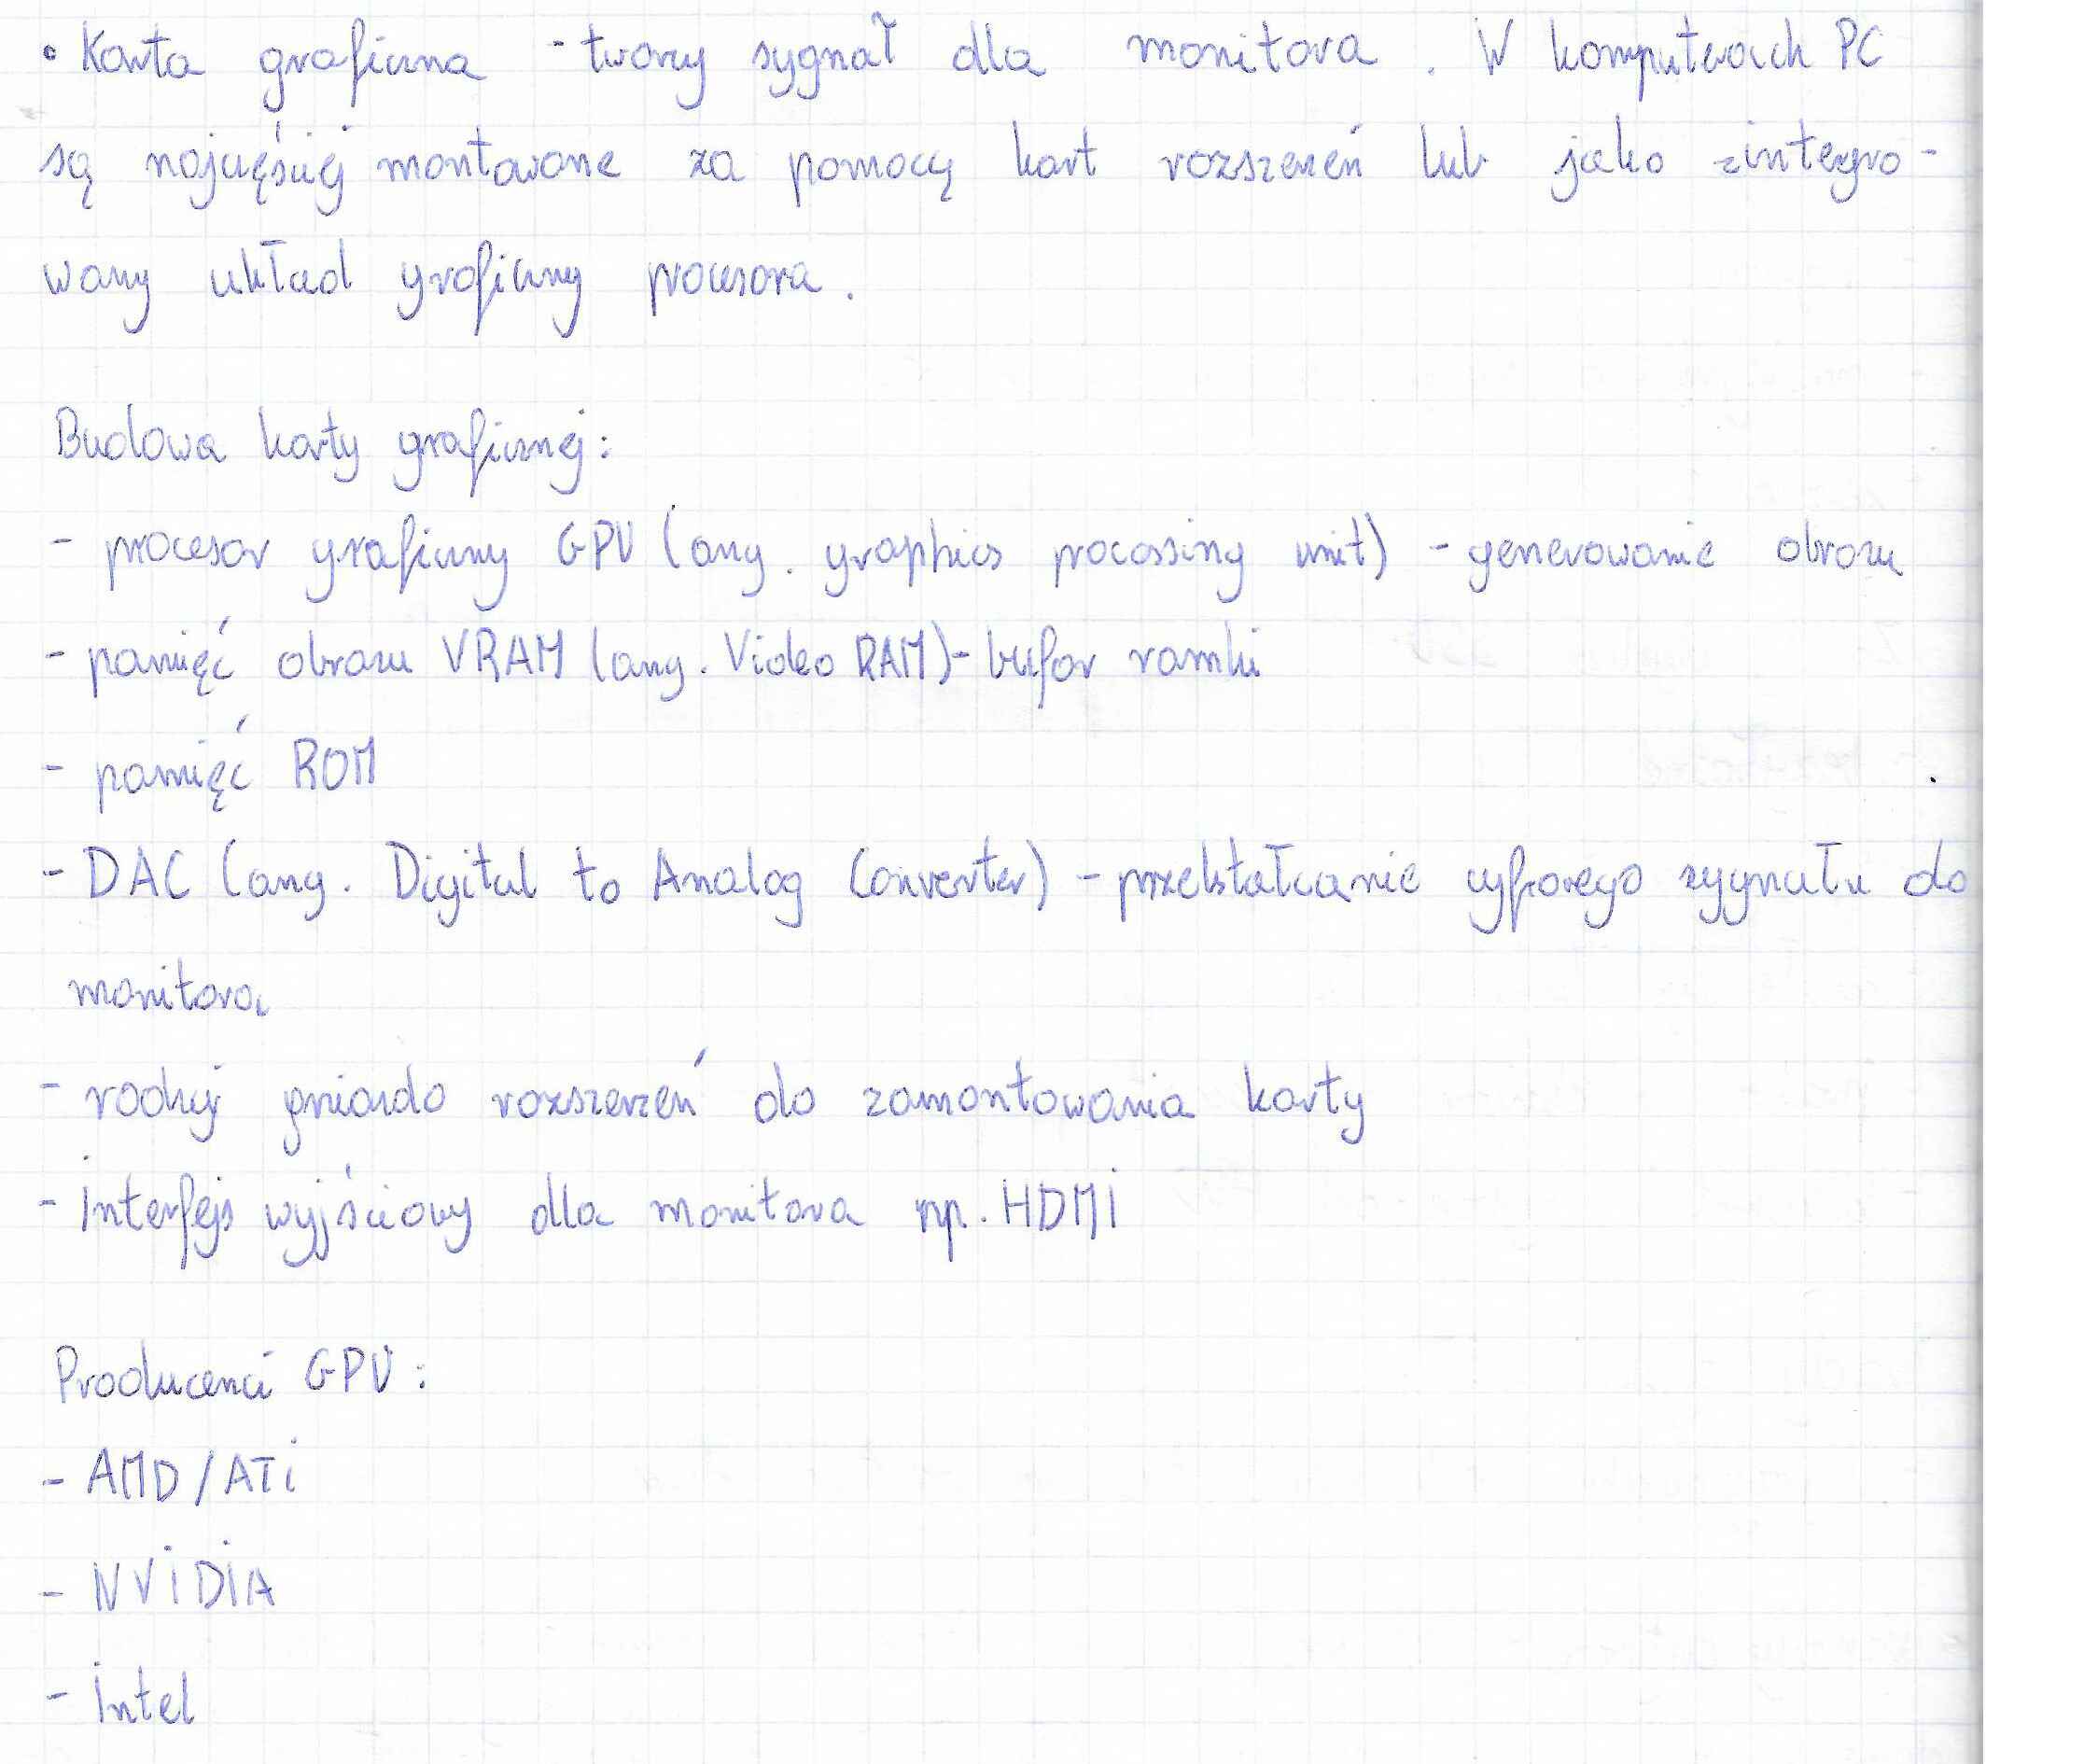 • Karta graficzna - tworzy sygnał dla monitora. W komputerach PC
są najczęściej montowane za pomocą kart rozszerzeń lub jako zintegro-
wany układ graficzny procesora.
Budowa karty graficznej:
- procesor graficzny GPU (ang. graphics processing unit) - generowanie obrazu
- pamięć obrazu VRAM (ang. Video RAM) - bufor ramki
- pamięć ROM
- DAC (ang. Digital to Analog Converter) - przekształcanie cyfrowego sygnału do
monitora
- rodzaj gniazda rozszerzeń do zamontowania karty
- Interfejs wyjściowy dla monitora np. HDMI
Producenci GPU:
- AMD/ATi
- NViDiA
- Intel